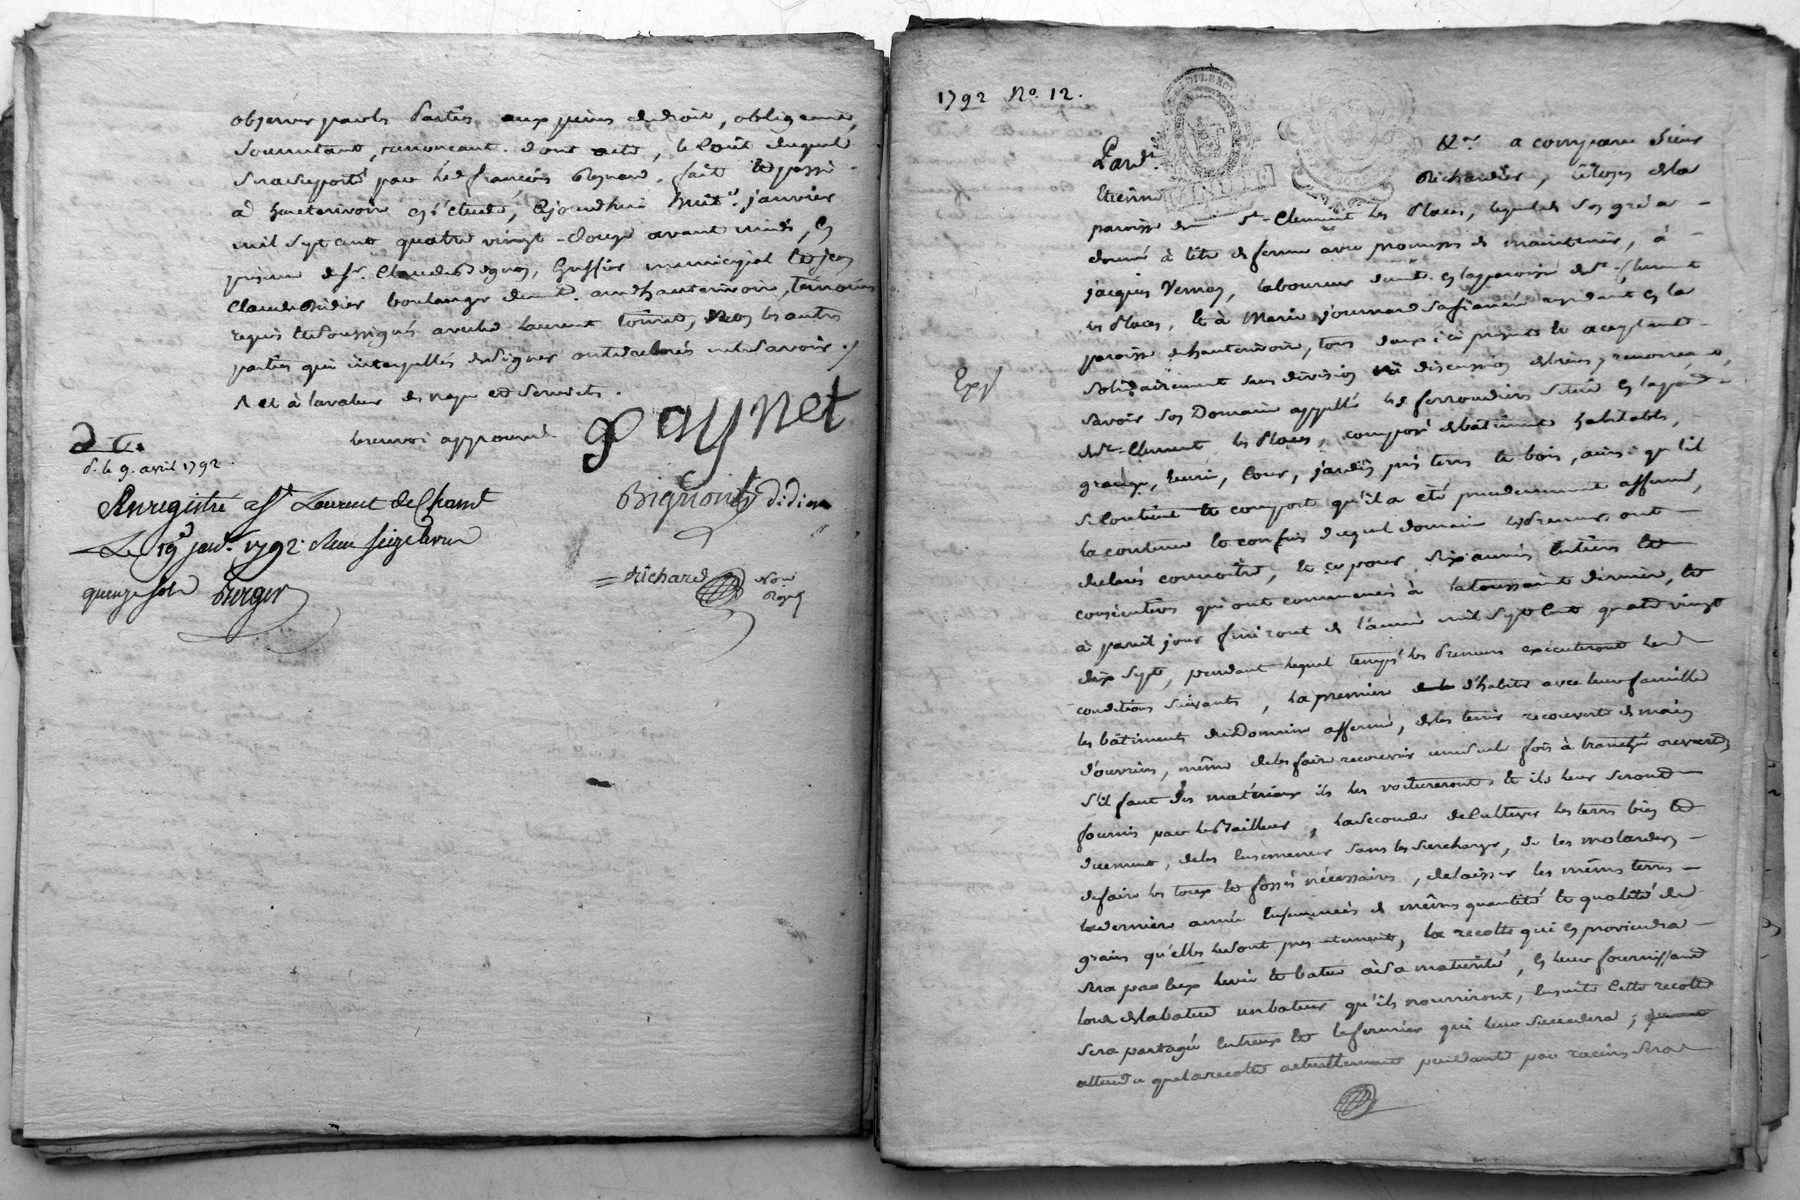 observer par les parties aux peines de droit, obligeant,
soumettant, renonçant. dont acte, le coût duquel
sera supporté par led. françois fait et passé
à hauterivoire en l'étude, cejourdhui huit janvier
mil sept cent quatre vingt-douze avant midi, en
présence de sr. Claude greffier municipal et jean
Claude didier boulanger demt. aud. hauterivoire, témoins
requis et soussignés avec led. laurent non les autres
parties qui interpellés de signer ont déclarés ne le savoir ./.
/ et à la valeur
le renvoi approuvé
d. le 9. avril 1792.
Enregistré à St. Laurent de Chamt
Le 19 janr. 1792. Reçu
quinze sols Berger
didier
Richard
Note
1792 No. 12.
Pard. &ca. a comparu sieur
Etienne Richardier, de la
paroisse de st-Clement les Places, lequel de son gré a
donné à titre de ferme avec promesse de maintenir, à
jacques Vernay, laboureur demt. en la paroisse de st-Clement
les Places, et à Marie journard sa fiancée résidant en la
paroisse d'hauterivoire, tous deux ici présents et acceptant
solidairement sans division ni discussion de biens, renonceant,
Exp.
savoir son Domaine appellé les ferrondiers situé en la parr.
de st-Clement les Places, composé de bâtiments habitables,
grange, écurie, cour, jardin, prés terres et bois, ainsi qu'il
se contient et comporte qu'il a été précédemment affermé,
la contenue et confins duquel domaine les preneurs ont
déclarés connoitre, et ce pour six années entières et
consécutives qui ont commencés à la toussaint dernier, et
à pareil jour finiront de l'année mil sept cent quatre vingt
dix sept, pendant lequel temps les preneurs exécuteront les
conditions suivantes, la première d'habiter avec leur famille
les bâtiments du Domaine affermé, de les tenir recouverts de main
d'ouvriers, même de les faire recouvrir une seule fois à tranché ouverte,
s'il faut des matériaux ils les voitureront et ils leur seront
fournis par le Bailleur, la seconde de cultiver les terres bien et
duement, de les ensemencer sans les surcharger, ou les
de faire les et fossés nécessaires, de laisser les mêmes terres
la dernière année ensemencées de mêmes quantité et qualité de
grains qu'elles le sont présentement, la récolte qui en proviendra
sera par eux levée et batue à sa maturité, en leur fournissant
lors de la batue un bateur qu'ils nourriront, ensuite cette récolte
sera partagée entreux et le fermier qui leur succédera;
attendu que la récolte actuellement pendante par racines sera